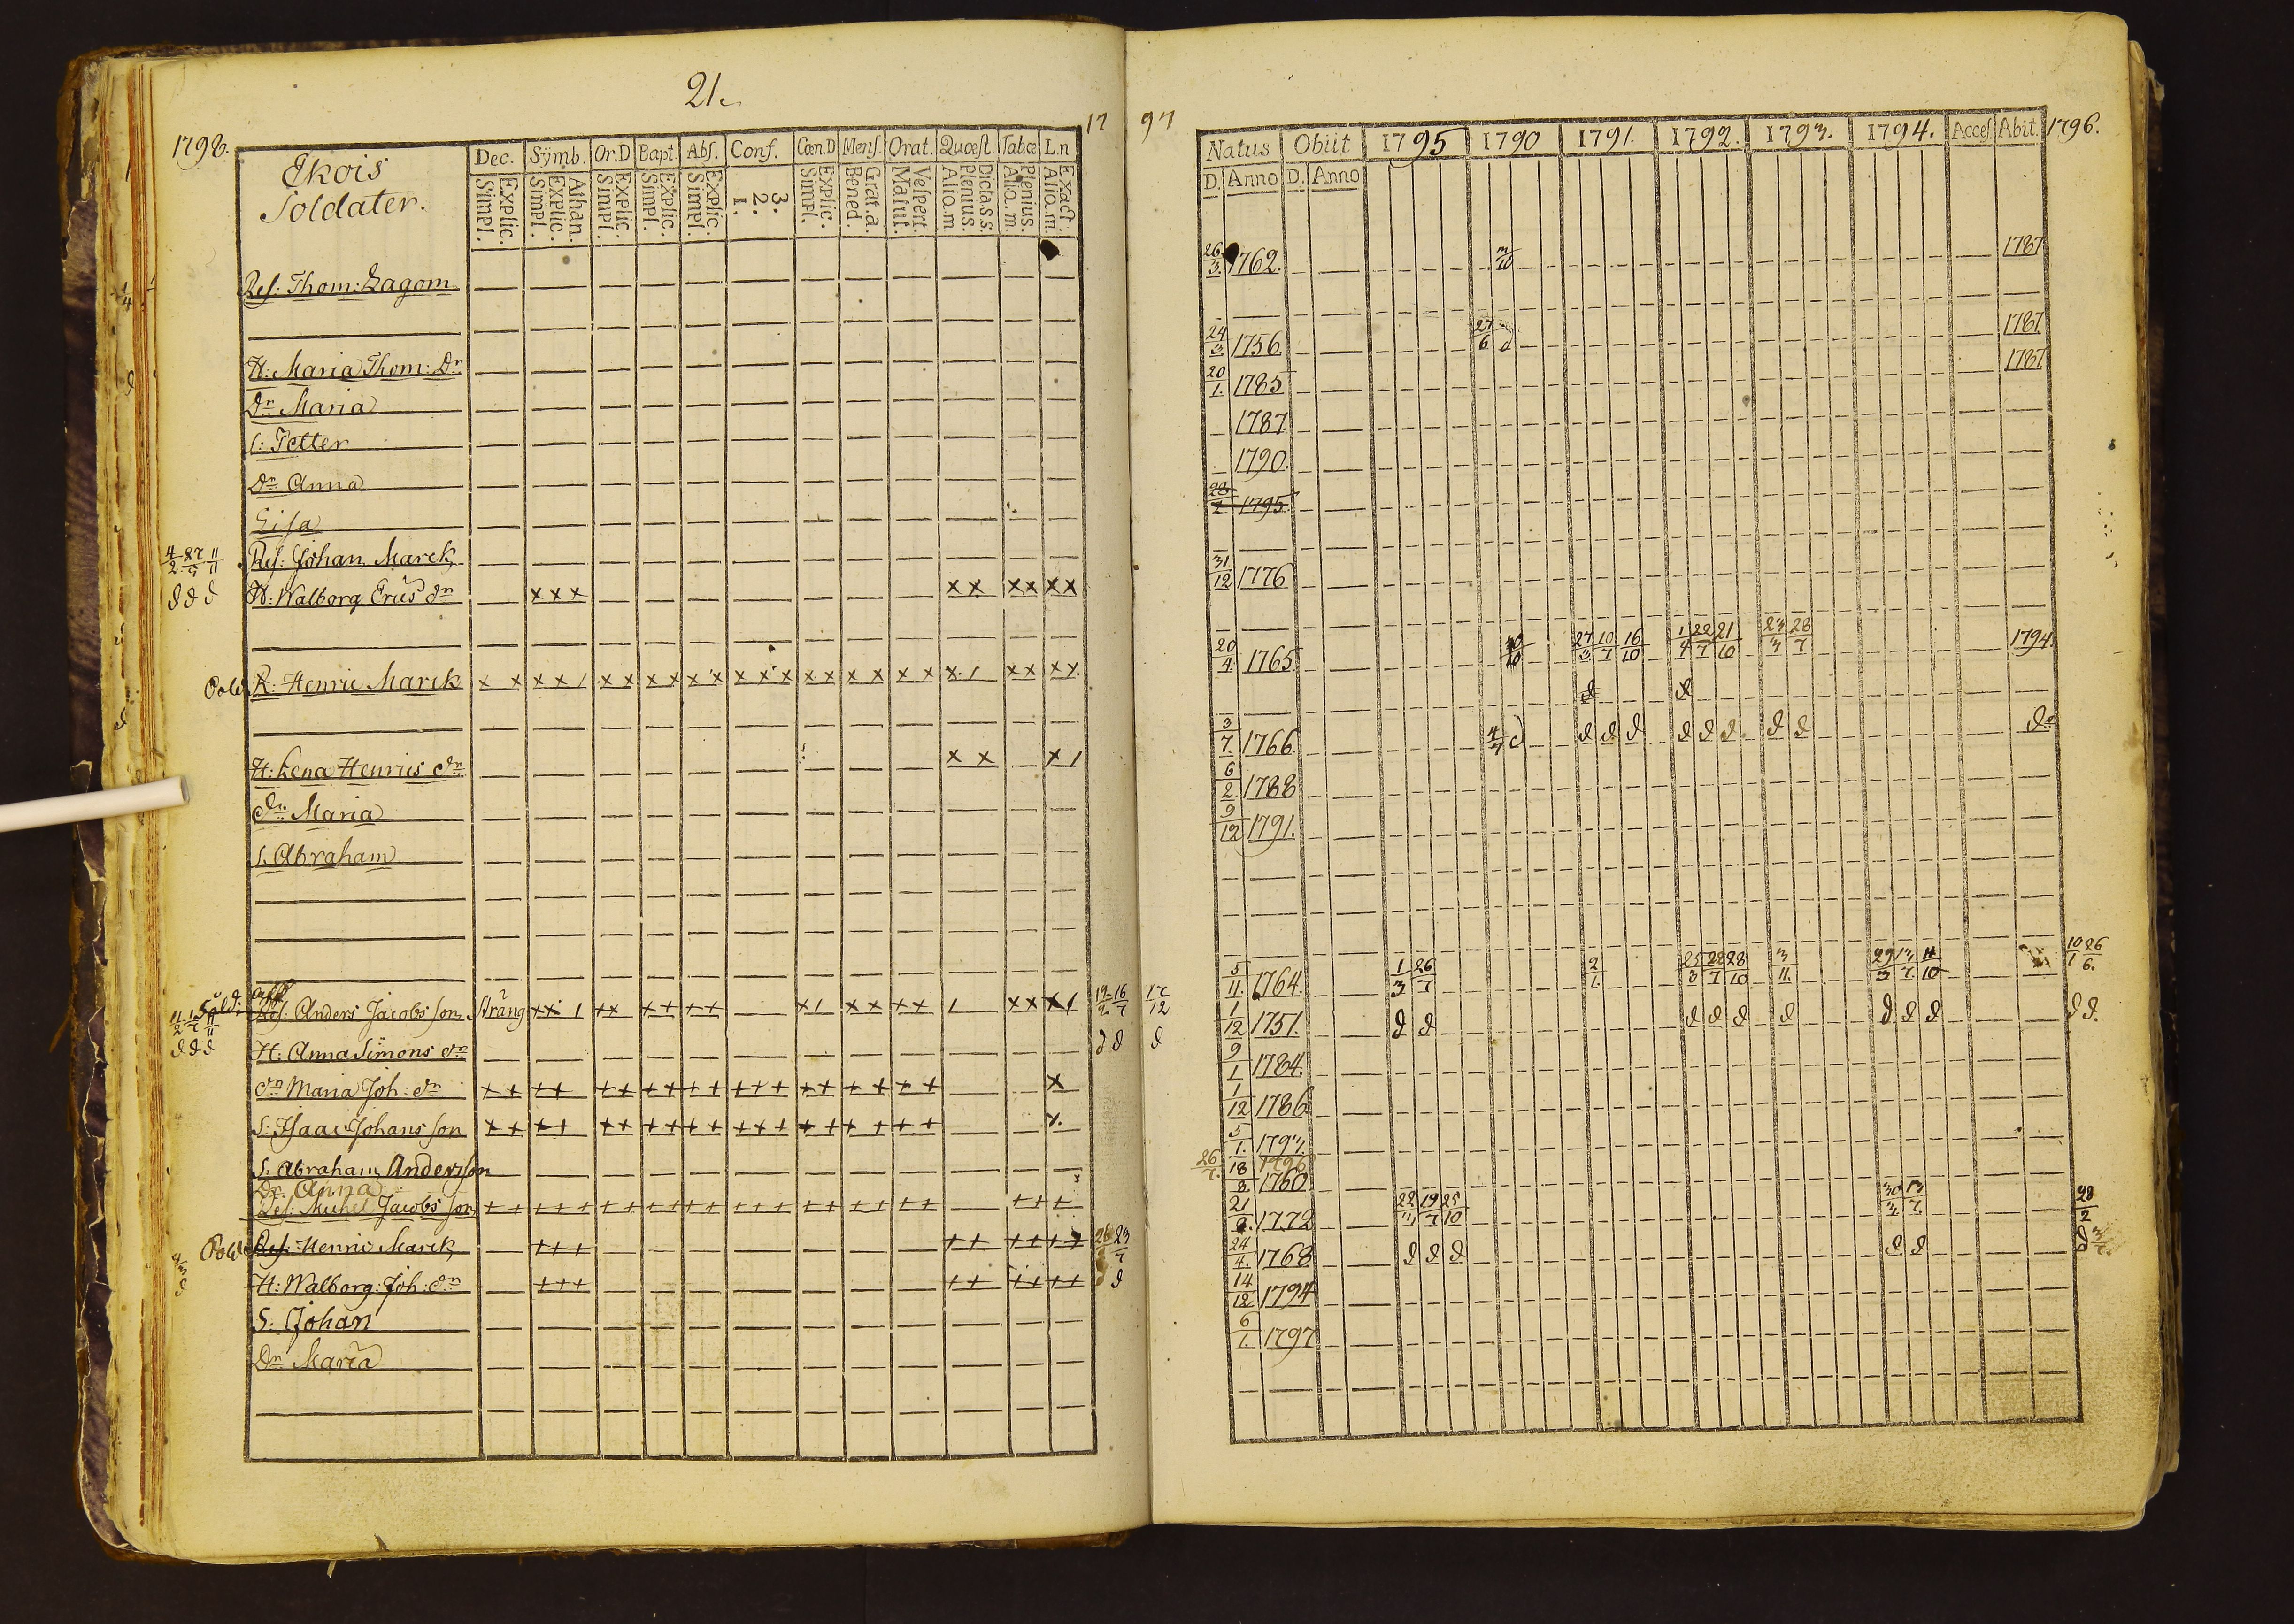 21.
1798.
Ekois
Soldater.
Dec. Sÿmb. Or.D Bapt. Abs. Conf. Cœn.D Mens. Orat. Quæst. Tabæ L.n
Explic. Simpl. Athan. Explic. Simpl. Explic. Simpl. Explic. Simpl. Explic. Simpl. 3. 2. 1. Explic. Simpl. Grat.a. Bened. Vespert. Matut. Dicta.S.S. Plenius. Alio.m Plenius. Alio.m. Exact. Alio.m.
Res: Thom: Lagom
H: Maria Thom: Dr
Dr Maria
S: Petter
Dr Anna
Lisa
4/2 11/11 Res: Johan Marck
d d d H: Walborg Erics dr xxx xx xx xx
R: Henric Marck x x x x / x x x x x x x x x x x x x x x x x / x x x x
H: Lena Henrics dr x x x /
dr Maria
S. Abraham
Res: Anders Jacobs son Sträng xx / xx ++ ++ x / xx ++ / xx x/
d d d H: Anna Simons dr
dr Maria Joh: dr ++ ++ ++ ++ ++ +++ ++ ++ ++ x
S: Isaac Johans son ++ ++ ++ ++ ++ +++ ++ ++ ++ x
S. Abraham Andersson
Dr. Anna
Res: Michel Jacobs son ++ +++ ++ ++ ++ +++ ++ ++ ++ +++
Res: Henric Marck +++ ++ ++ ++
H: Walborg: Joh: dr +++ ++ ++ ++
S: Johan
Dr Maria
17 97
Natus Obiit 1795 1790 1791. 1792. 1793. 1794. Acces. Abit. 1796.
D. Anno D. Anno
26/3. 1762. 3/10 1787
24/3 1756. 27/6 d 1787
20/1. 1785. 1787
1787
1790.
1795.
31/12 1776
20/4. 1765. 27/3 10/7 16/10 1/4 22/7 21/10 28/7 1794.
d d
3/7. 1766. 4/7 d d d d d d d d d do
6/2. 1788
9/12 1791.
5/11. 1764. 1/3 26/7 2/1. 25/3 22/7 28/10 3/11. 10/1 26/6.
1/12 1751. d d d d d d d d d d d.
9/1 1784.
1/12 1786
5/1. 1793.
26/7. 1796
18/8. 1760.
21/8. 1772 22/3 19/7 25/10 30/3 13/7. 28/2
24/4. 1768 d d d d d d
14/12 1794
6/1. 1797